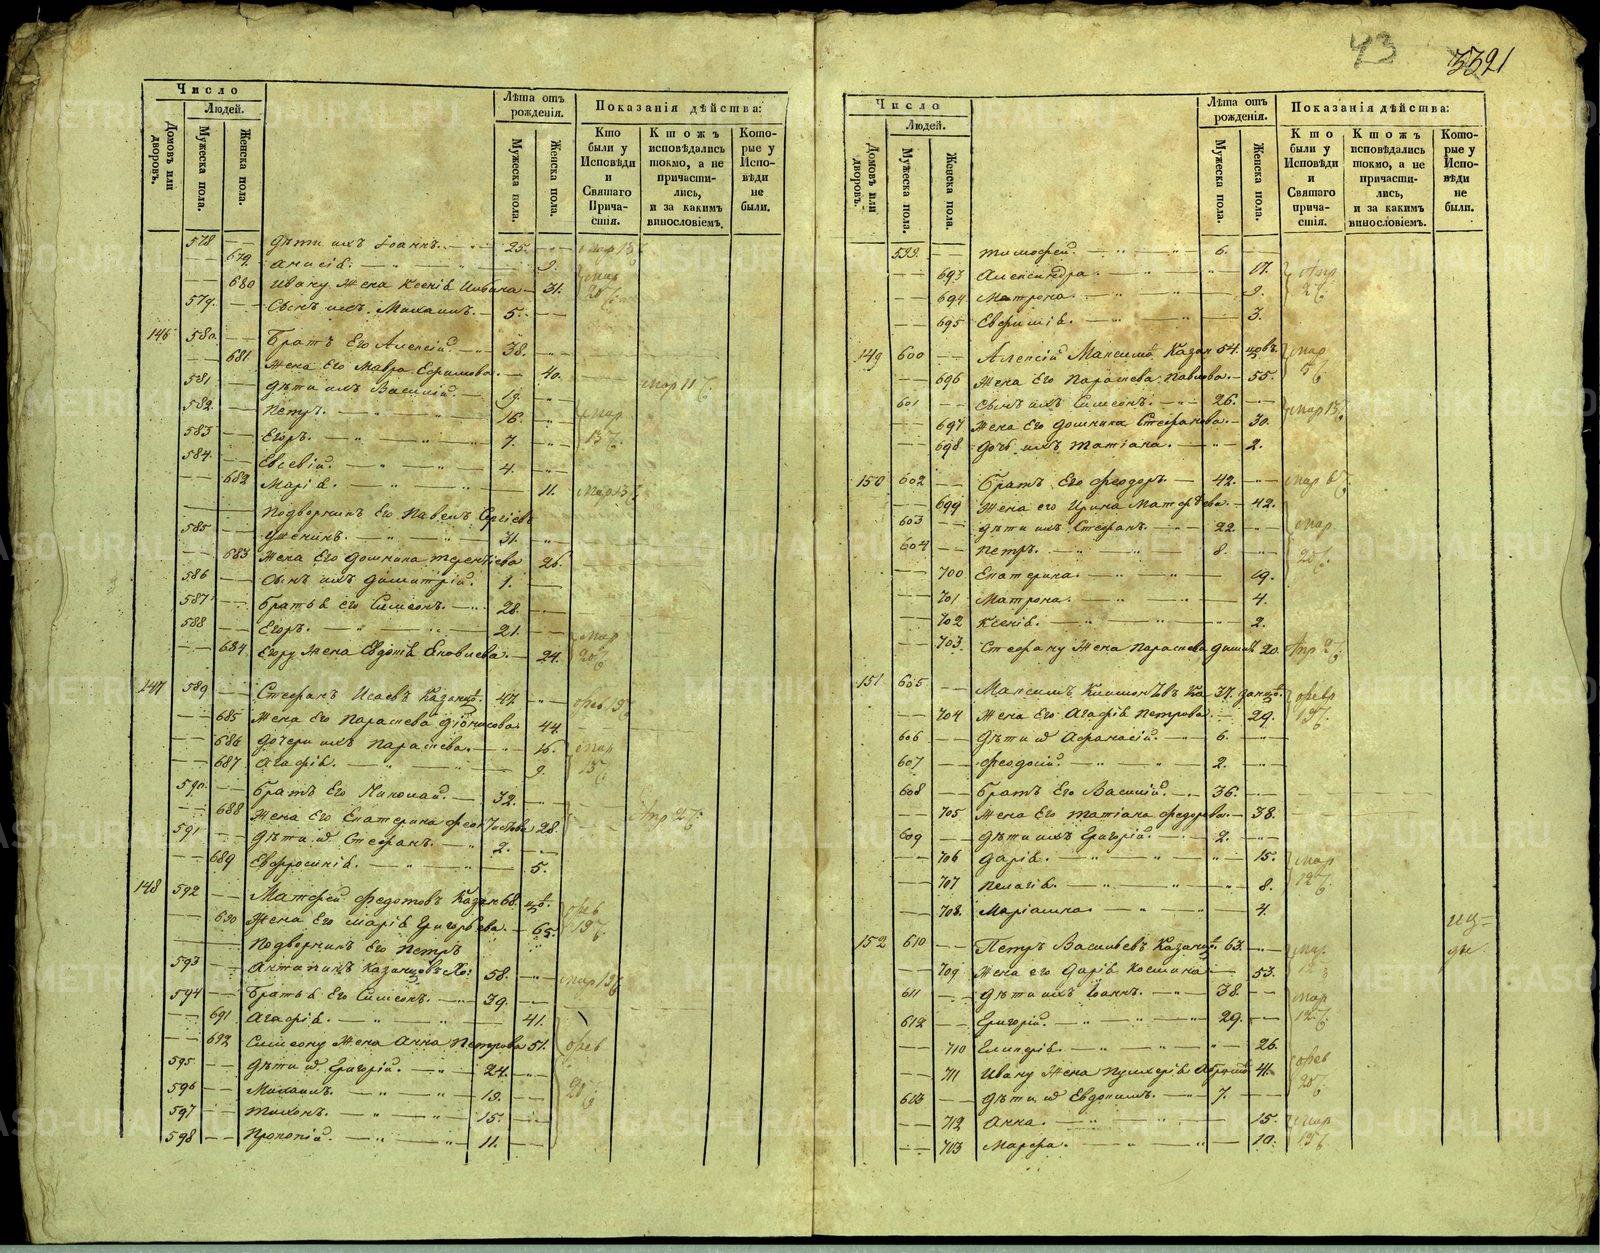 43
3321
Число
Людей.
Домовъ или дворовъ.
Мужеска пола.
Женска пола.
Лѣта отъ рожденія.
Мужеска пола.
Женска пола.
Показанія дѣйства:
Кто были у Исповѣди и Святаго Причастія.
Ктожъ исповѣдались токмо, а не причастились, и за какимъ винословіемъ.
Которые у Исповѣди не были.
578 — дѣти ихъ Іоаннъ. 25. мар 13
679. Анисія. 9.
680 Ивану жена Ксенія 31. мар 20
579. Сынъ ихъ Михаилъ. 5.
146 580. Братъ Его Алексій. 38.
681 Жена Его Мавра Ефимова. 40. мар 11
581 дѣти ихъ Василій. 19.
582. Петръ. 16. мар
583 Егоръ. 7. 13
584. Евсевій. 4.
682 Марія. 11. мар 13
Подворникъ Его Павелъ Сергіевъ
585. 31.
683 Жена Его Домника Терентіева 26.
586 Сынъ ихъ Димитрій. 1.
587 Братья его Симеонъ. 28.
588 Егоръ. 21. мар
684. Егору Жена Евдокія Яковлева. 24. 20
147 589 Стефанъ Исаевъ Казанцовъ 47. фев 19
685 Жена Его Параскева Діонисова. 44.
686 дочери ихъ Параскева. 16. мар
687 Агафія. 9. 13
590. Братъ Его Николай. 32.
688 Жена Его Екатерина 28. Апр 2
591 дѣти ихъ Стефанъ. 2.
689 Евфросинія. 5.
148 592 Матфей Федотовъ Казанцовъ 68. фев
690 Жена Его Марія Григорьева. 65. 19
Подворникъ Его Петръ
593 Антипинъ Казанцовъ Хо: 58. мар 13
594 Братья Его Симеонъ. 39.
691 Агафія. 41.
692 Симеону Жена Анна Петрова 51. фев
595 дѣти ихъ Григорій. 24. 20
596 Михаилъ. 19.
597 Тихонъ. 15.
598 Прокопій. 11.
Число
Людей.
Домовъ или дворовъ.
Мужеска пола.
Женска пола.
Лѣта отъ рожденія.
Мужеска пола.
Женска пола.
Показанія дѣйства:
Кто были у Исповѣди и Святаго причастія.
Ктожъ исповѣдались токмо, а не причастились, и за какимъ винословіемъ.
Которые у Исповѣди не были.
599. Тимофей. 6.
693 Александра. 17. Апр
694 Матрона. 9. 2
695 Евфимія. 3.
149 600 Алексій Максимов Казанцовъ 54. мар
696 Жена Его Параскева Павлова. 55. 5
601 Сынъ ихъ Симеонъ. 26.
697 Жена Его Домника Стефанова. 30. мар 13
698 Дочь ихъ Татіана. 2.
150 602 Братъ Его Феодоръ. 42. мар 6
699 Жена его Ирина Матфѣева. 42.
603 дѣти ихъ Стефанъ. 22. мар
604 Петръ. 8. 20
700 Екатерина. 19.
701 Матрона. 4.
702 Ксенія. 2.
703. Стефану Жена Параскева 20. Апр 2
151 605 Максимъ Казанцов. 37. февр
704 Жена Его Агафія Петрова. 29. 19
606 дѣти ихъ Афанасій. 6.
607 Феодосій. 2.
608 Братъ Его Василій. 36.
705 Жена Его Татіана Федорова. 38.
609 дѣти ихъ Григорій. 2.
706 Дарія. 15. мар
707 Пелагія. 8. 12
708. Маріамна. 4.
152 610 Петръ Васильевъ Казанцов 63. мар
709 Жена его Дарія Космина 53.
611 дѣти ихъ Іоаннъ. 38. мар
612 Григорій. 29. 12
710 Гликерія. 26.
711 Ивану Жена 41. фев
613 дѣти ихъ Евдокимъ. 7. 20
712 Анна. 15. мар
713 Марфа. 10. 13
METRIKI.GASO-URAL.RU